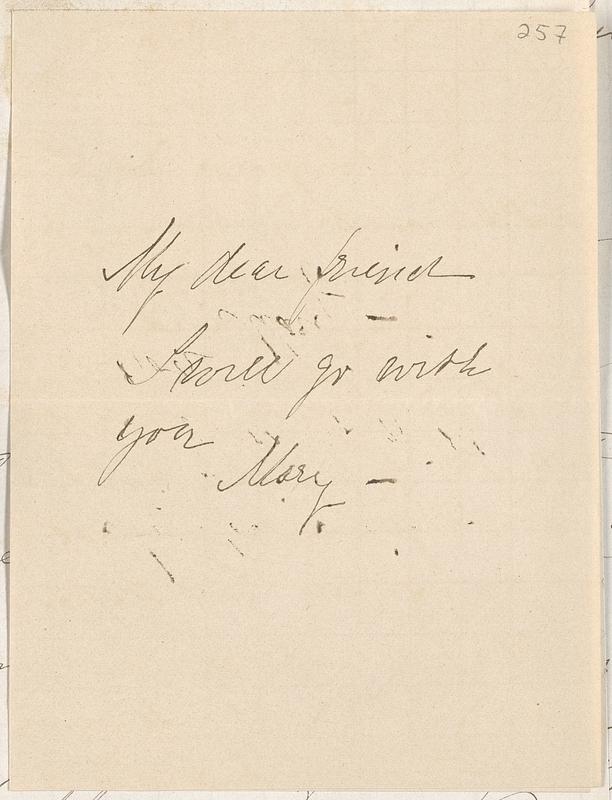 257
My dear friend
I will go with
you
Mary —